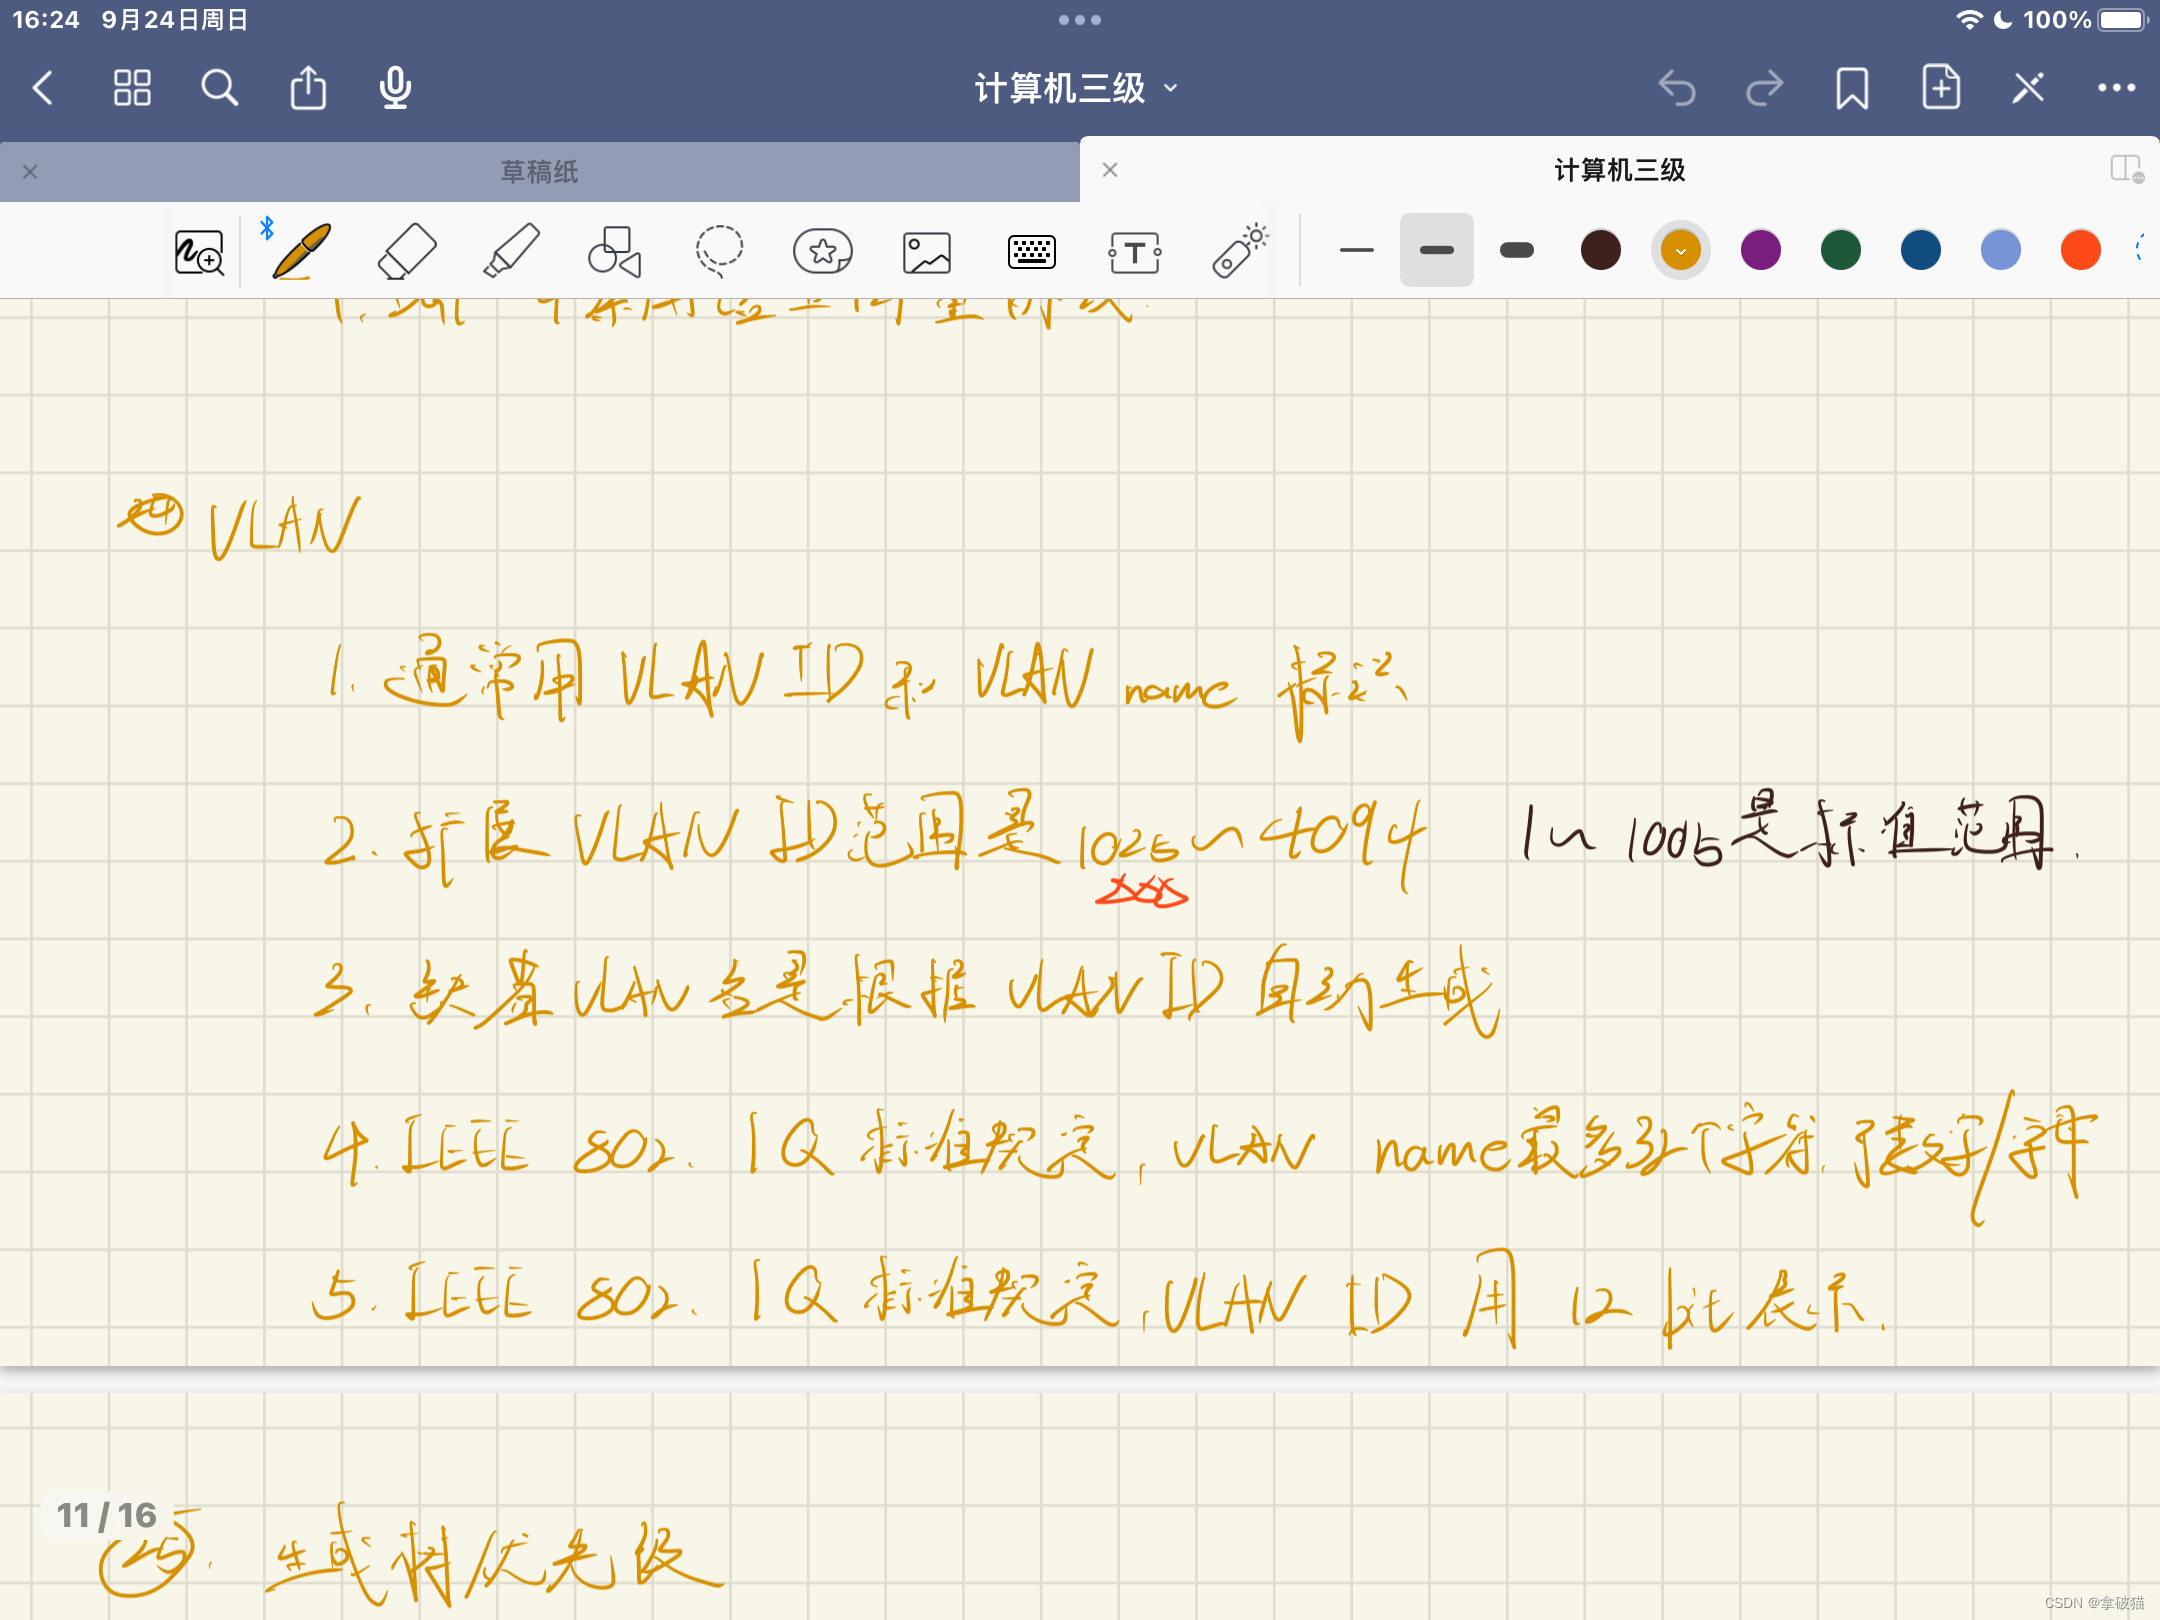 16:24 9月24日周日 100%
计算机三级
草稿纸 计算机三级
㉔ VLAN
1. 通常用 VLAN ID 和 VLAN name 标识
2. 扩展 VLAN ID 范围是 1025~4094 1~1005是标准范围.
3. 缺省 VLAN 名是根据 VLAN ID 自动生成
4. IEEE 802.1Q 标准规定, VLAN name最多32个字符, 可是数字/字母
5. IEEE 802.1Q 标准规定, VLAN ID 用 12 bit 表示.
11 / 16
㉕. 生成树优先级
CSDN @拿破猫